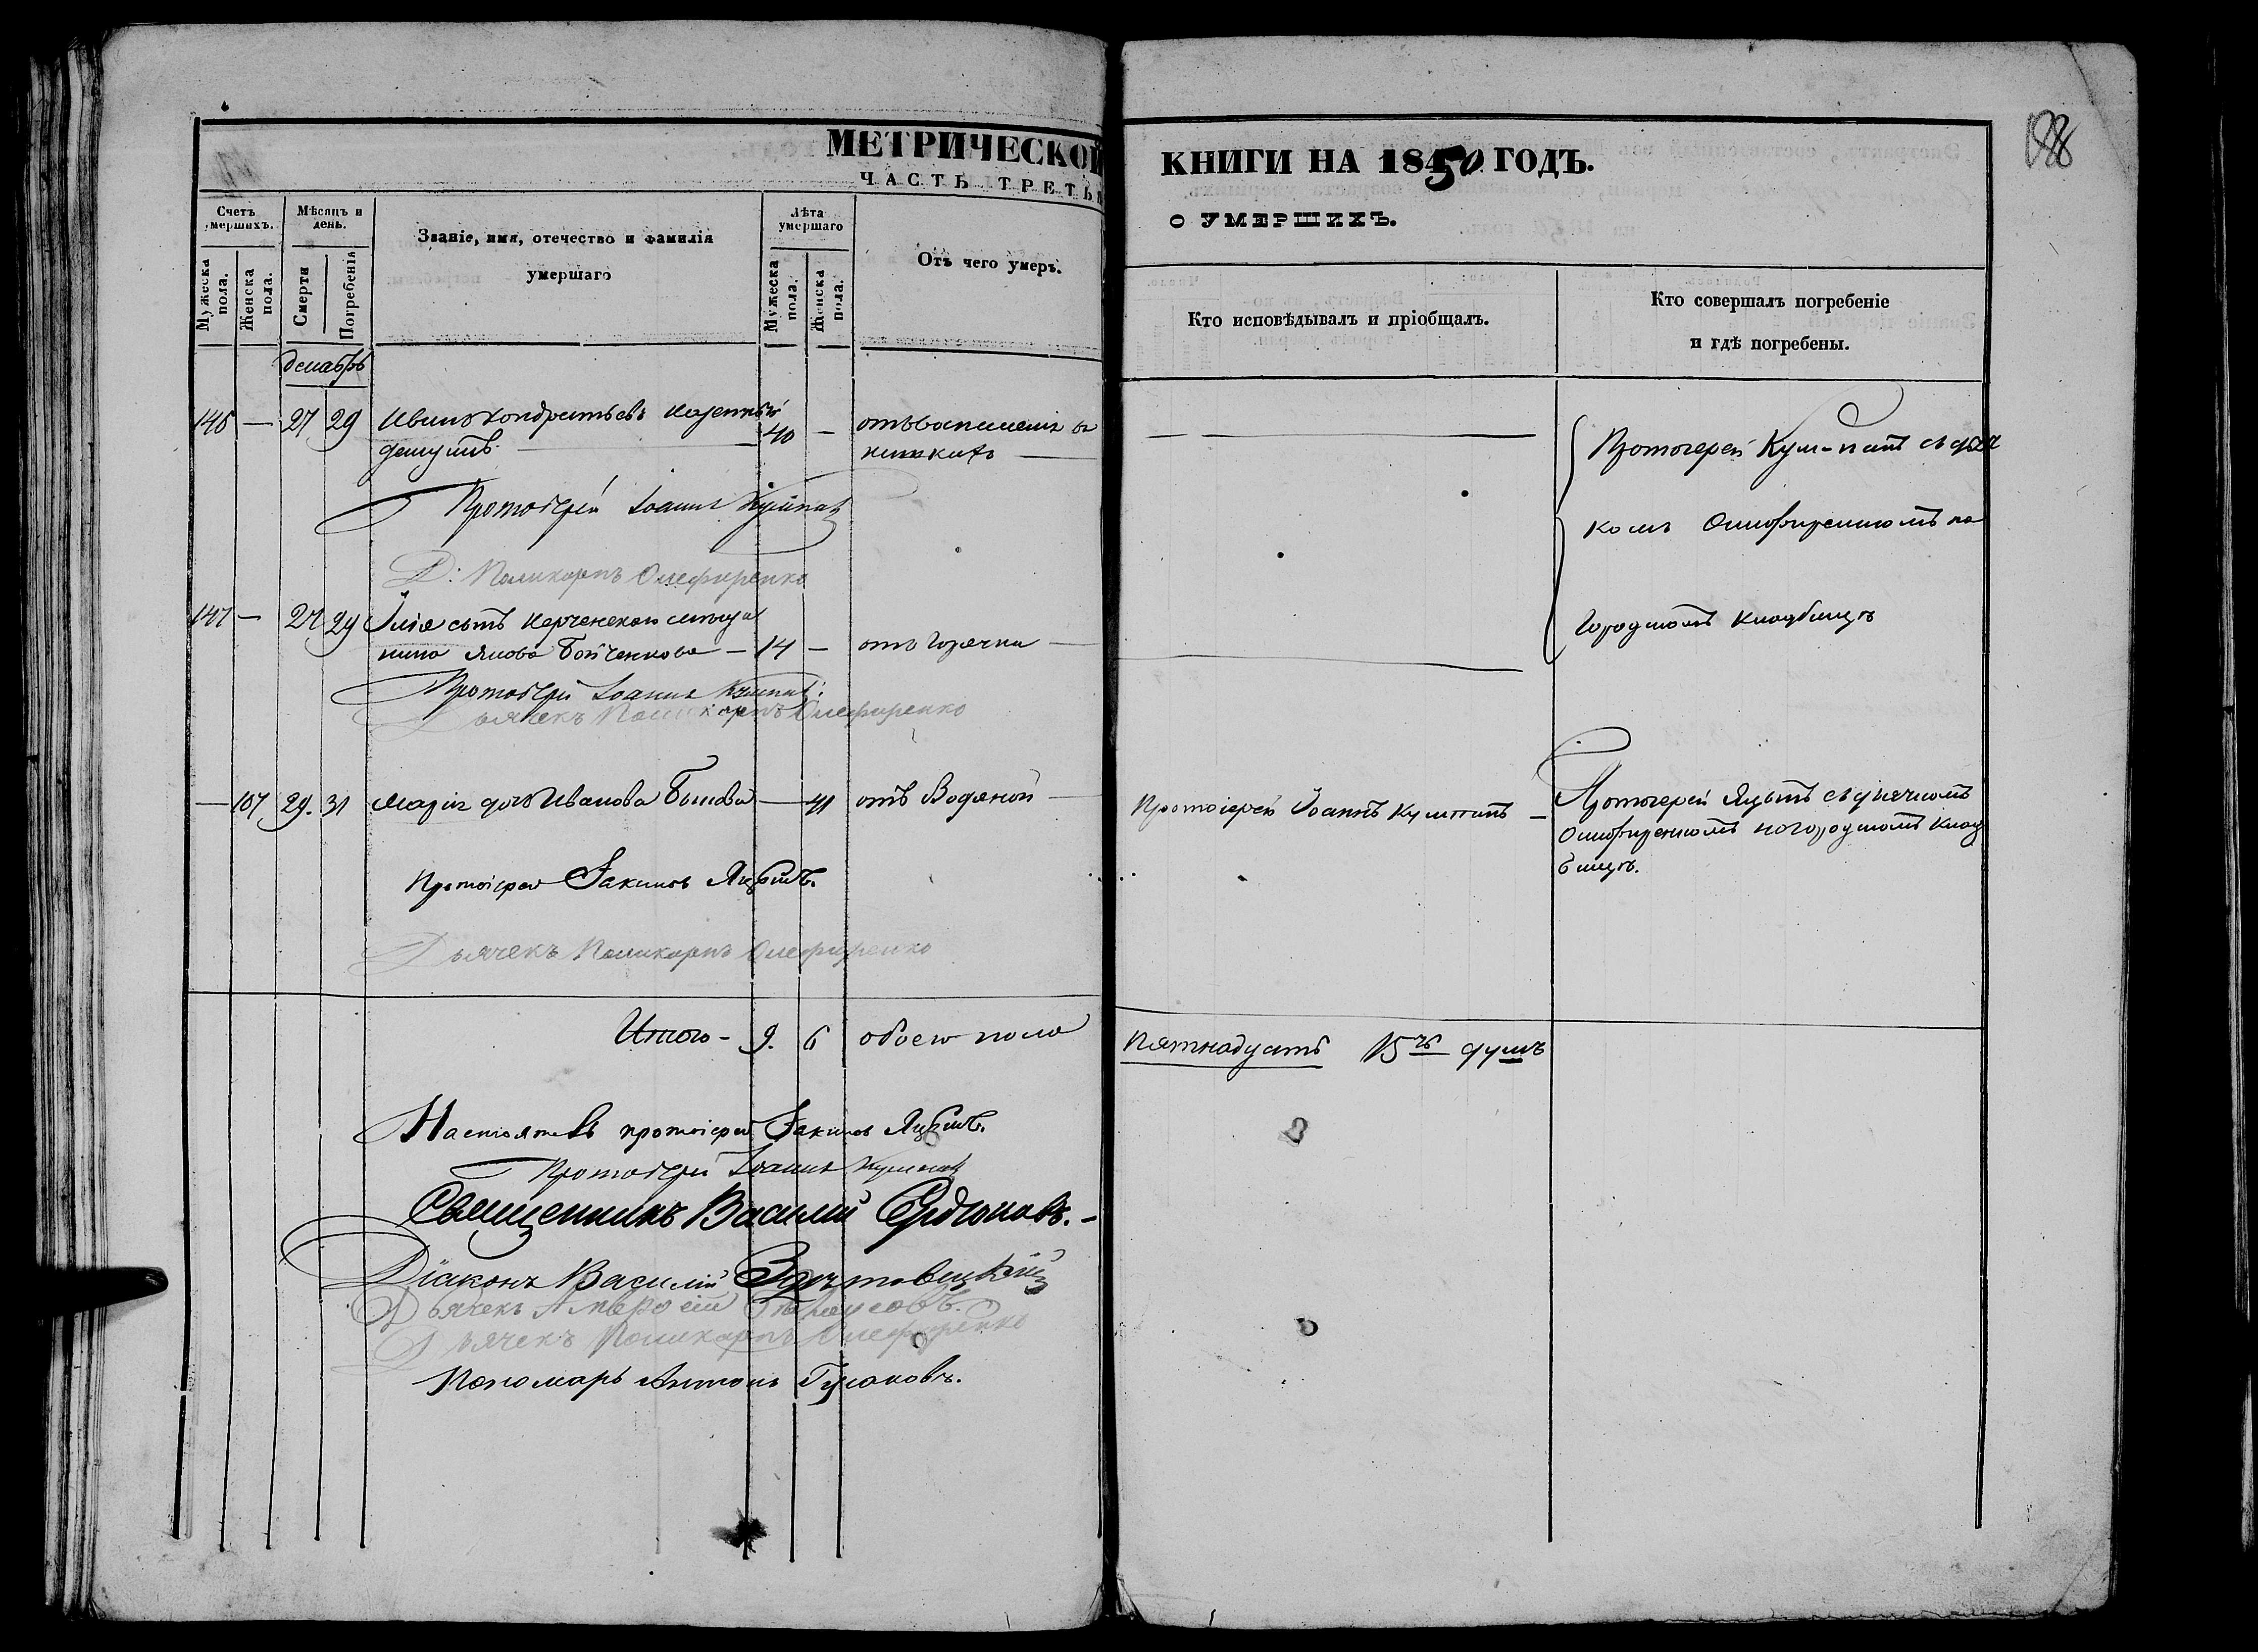 МЕТРИЧЕСКОЙ КНИГИ НА 1850 ГОДЪ.
ЧАСТЬ ТРЕТЬЯ
О УМЕРШИХЪ.
188
Счетъ умершихъ.
Мужеска пола.
Женска пола.
Мѣсяцъ и день.
Смерти
Погребенія
Званіе, имя, отечество и фамилія
умершаго
Лѣта умершаго
Мужеска пола.
Женска пола.
Отъ чего умеръ.
Кто исповѣдывалъ и пріобщалъ.
Кто совершалъ погребеніе
и гдѣ погребены.
декабрь
146 — 27 29 Иванъ Кондратьевъ
40 — отъ воспаленія въ
кишкахъ —
Протоіерей Іоаннъ Кумпанъ
Д: Поликарпъ Олефиренко
Протоіерей Кумпанъ съ дьяч
комъ Олефиренкомъ на
Городскомъ кладбищѣ
147 — 27 29 Илія сынъ Керченскаго мѣща
нина Якова Бойченкова — 14 — отъ горячки —
Протоіерей Іоаннъ Кумпанъ
Дьячекъ Поликарпъ Олефиренко
— 107 29. 31 Марія дочь Иванова — 41 отъ Водяной —
Протоіерей Іоаннъ Кумпанъ —
Протоіерей Яцынъ съ дьячкомъ
Олефиренкомъ на городскомъ клад
бищѣ.
Протоіерей Іакимъ
Дьячекъ Поликарпъ Олефиренко
Итого - 9. 6 обоего пола
Пятнадцать 15ть душъ
Настоятель протоіерей Іакимъ
Протоіерей Іоаннъ Кумпанъ
Священникъ Василій
Діаконъ Василій
Дьячекъ
Дьячекъ Поликарпъ Олефиренко
Пономарь Антонъ